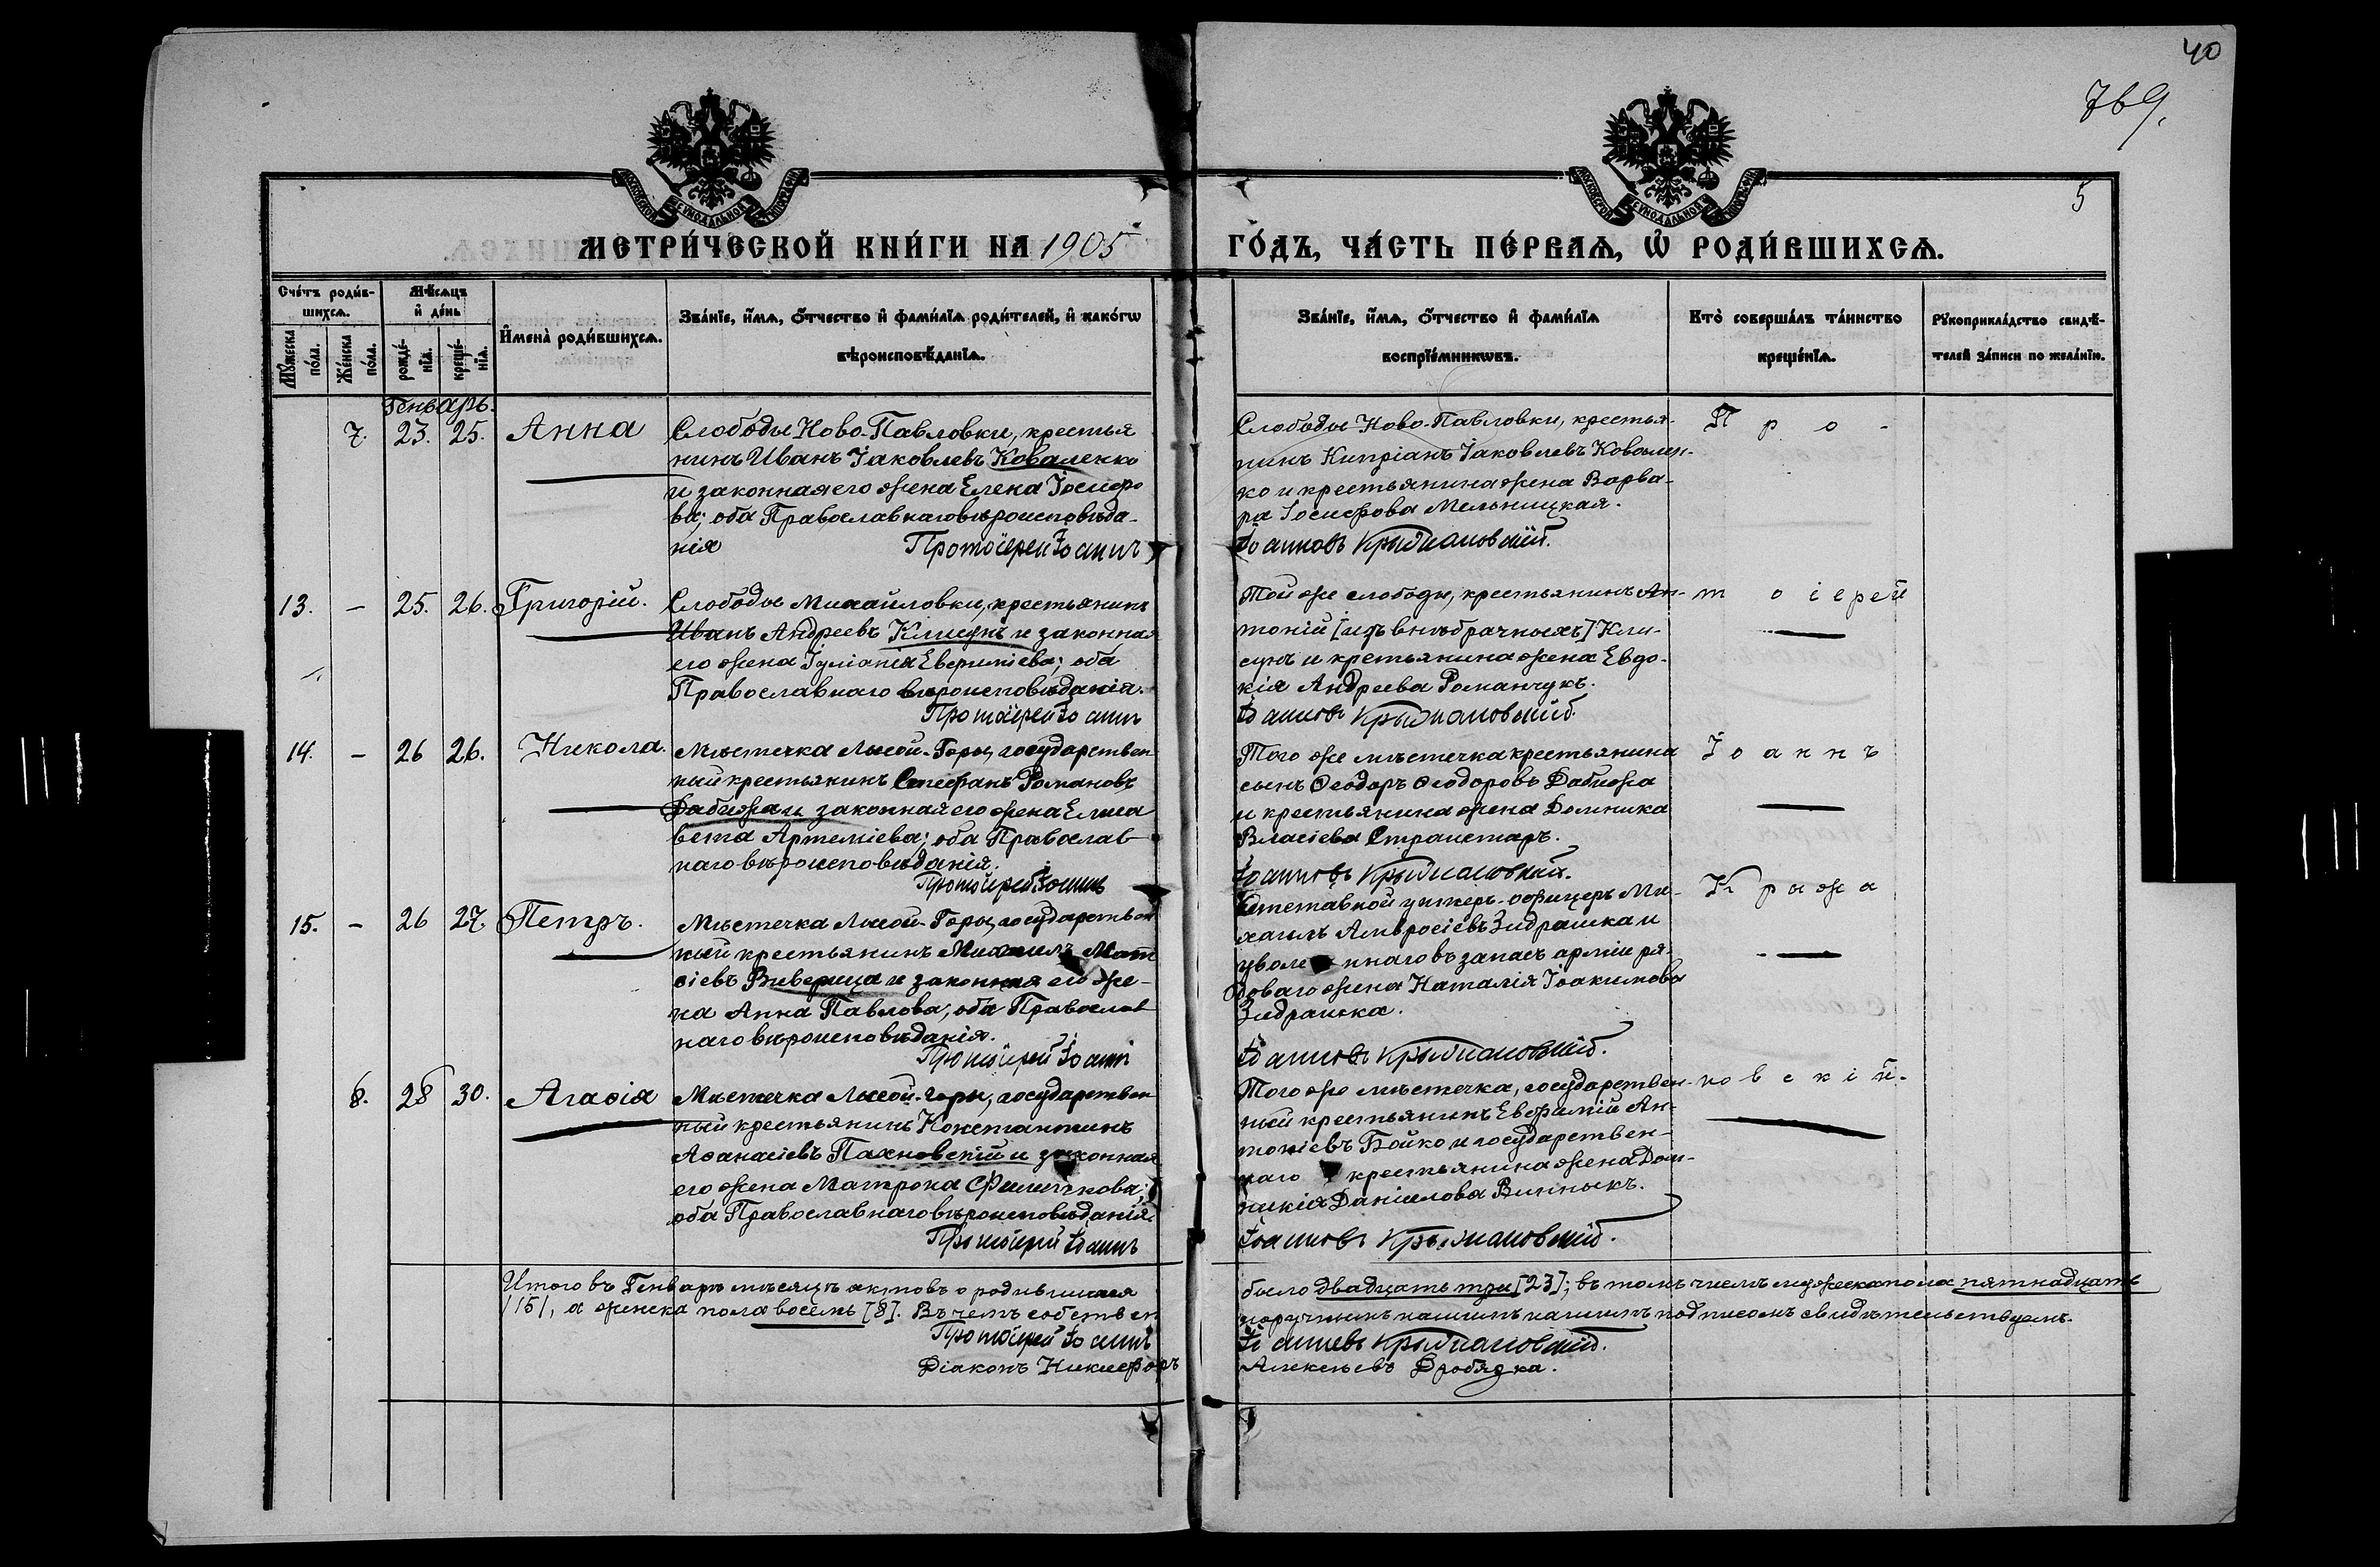 40
769.
5
МОСКОВСКОЙ СѴНОДАЛЬНОЙ ТИПОГРАФІИ
МОСКОВСКОЙ СѴНОДАЛЬНОЙ ТИПОГРАФІИ
МЕТРИ́ЧЕСКОЙ КНИ́ГИ НА 1905
ГО́ДЪ, ЧА́СТЬ ПЕ́РВАѦ, Ѡ҆ РОДИ́ВШИХСѦ.
Сче́тъ роди́в-
шихсѧ.
Мꙋ́жеска по́ла.
Же́нска по́ла.
Мѣ́сѧцъ
и҆ де́нь
рожде́-нїѧ.
креще́-нїѧ.
И҆мена̀ роди́вшихсѧ.
Зва́нїе, и҆́мѧ, ѻ҆́тчество и҆ фами́лїѧ роди́телей, и҆ како́гѡ
вѣроисповѣ́данїѧ.
Зва́нїе, и҆́мѧ, ѻ҆́тчество и҆ фами́лїѧ
воспрїе́мникѡвъ.
Кто̀ соверша́лъ та́инство
креще́нїѧ.
Рꙋкоприкла́дство свидѣ́-
телей за́писи по жела́нїю.
Генварь.
7. 23. 25. Анна
Слободы Ново-Павловки, крестья
нинъ Иванъ Іаковлевъ Коваленко
и законная его жена Елена Іосифо
ва; оба Православнаго вѣроисповѣда-
нія
Протоіерей Іоаннъ
Слободы Ново-Павловки, крестья-
нинъ Кипріанъ Іаковлевъ Ковален-
ко и крестьянина жена Варва-
ра Іосифова Мельницкая.
Іоанновъ Крыжановскій.
Про-
13. - 25. 26. Григорій.
Слободы Михайловки, крестьянинъ
Иванъ Андреевъ Клисунъ и законная
его жена Іуліанія Евфиміева; оба
Православнаго вѣроисповѣданія.
Протоіерей Іоаннъ
Той же слободы, крестьянинъ Ан-
тоній [изъ внѣбрачныхъ] Кли-
сунъ и крестьянина жена Евдо-
кія Андреева Романчукъ.
Іоанновъ Крыжановскій.
тоіерей
14. - 26 26. Никола.
Мѣстечка Лысой-Горы, государствен
ный крестьянинъ Стефанъ Романовъ
Дабижа и законная его жена Елиса
вета Артеміева; оба Православ
наго вѣроисповѣданія.
Протоіерей Іоаннъ
Того же мѣстечка крестьянина
сынъ Ѳеодоръ Ѳеодоровъ Дабижа
и крестьянина жена Домника
Власіева Странстаръ.
Іоанновъ Крыжановскій.
Іоаннъ
15. - 26 27. Петръ.
Мѣстечка Лысой-Горы, государствен
ный крестьянинъ Михаилъ Мат
ѳіевъ Виверица и законная его же-
на Анна Павлова; оба Православ
наго вѣроисповѣданія.
Протоіерей Іоаннъ
Отставной унтеръ-офицеръ Ми-
хаилъ Амвросіевъ Зидрашка и
уволеннаго въ запасъ арміи ря-
доваго жена Наталія Іоакимова
Зидрашка.
Іоанновъ Крыжановскій.
Крыжа
8. 28 30. Агаѳія
Мѣстечка Лысой-Горы, государствен
ный крестьянинъ Константинъ
Аѳанасіевъ Пахновскій и законная
его жена Матрона Филиппова;
оба Православнаго вѣроисповѣданія.
Протоіерей Іоаннъ
Того же мѣстечка, государствен-
ный крестьянинъ Евфимій Ан-
тоніевъ Бойко и государствен-
наго крестьянина жена Дом-
никія Даніилова Винныкъ.
Іоанновъ Крыжановскій.
новскій.
Итого въ Генварѣ мѣсяцѣ актовъ о родившихся
было двадцать три [23]; въ томъ числѣ мужеска пола пятнадцать
/15/, а женска пола восемь [8]. Въ чемъ собствен
норучнымъ нашимъ подписомъ свидѣтельствуемъ.
Протоіерей Іоаннъ
Іоанновъ Крыжановскій.
Діаконъ Никифоръ
Алексѣевъ Дробязка.